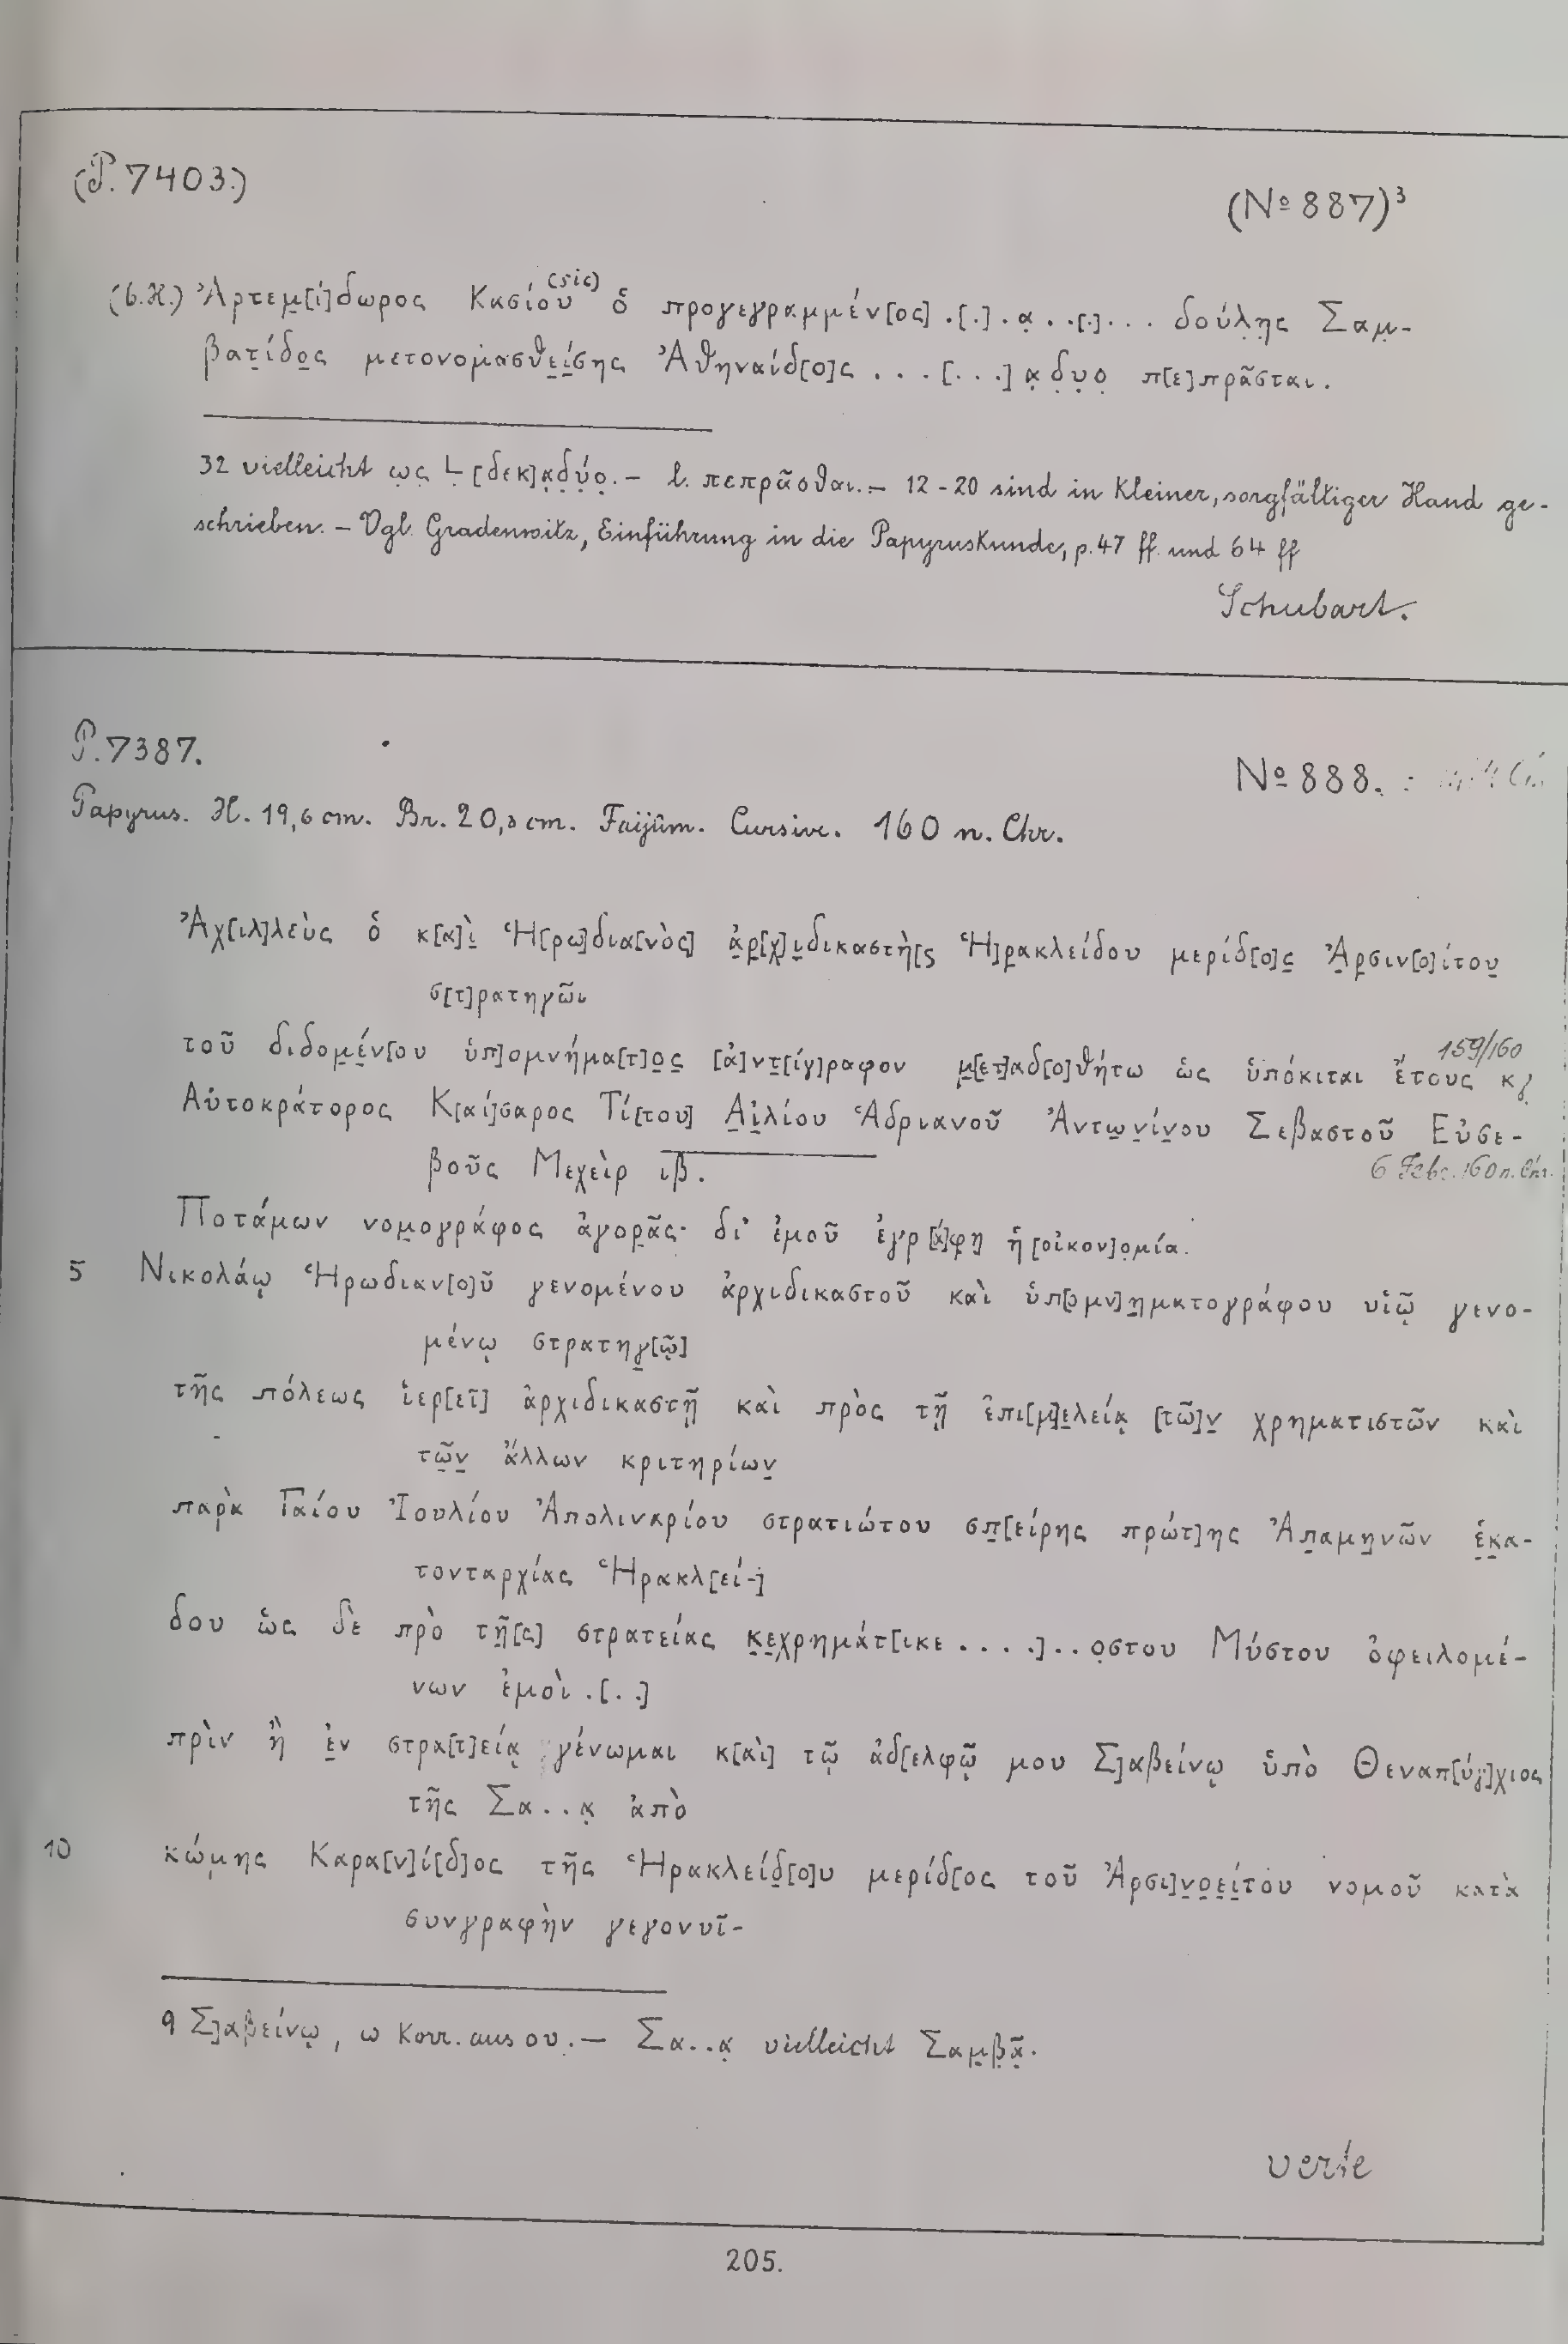 (P. 7403.)
(№ 887)³
(sic)
(6.H.) Ἀρτεμ̣[ί]δωρος Κασίου ὁ προγεγραμμέν[ος] .[.] . α̣ . .[.] . . . δούλ̣η̣ς Σαμ̣-
βατ̣ίδο̣ς μετονομασθε̣ί̣σης Ἀθηναίδ[ο]ς . . . [. . .] α̣ δ̣υ̣ο̣ π[ε]πρᾶσται.
32 vielleicht ω̣ς̣ Ḷ [δεκ]α̣δ̣ύ̣ο̣. – l. πεπρᾶσθαι. – 12-20 sind in kleiner, sorgfältiger Hand ge-
schrieben. – Vgl. Gradenwitz, Einführung in die Papyruskunde, p. 47 ff. und 64 ff
Schubart.
P. 7387.
№ 888.
Papyrus. H. 19,6 cm. Br. 20,3 cm. Faijûm. Cursive. 160 n. Chr.
Ἀχ[ιλ]λεὺς ὁ κ[α]ὶ̣ Ἡ[ρω]δια[νὸς] ἀ̣ρ̣[χ]ι̣δικαστὴ[ς Ἡ]ρ̣ακλείδου μερίδ[ο]ς̣ Ἀ̣ρ̣σιν[ο]ίτου̣
σ[τ]ρατηγῶι
159/160
τοῦ διδομ̣έ̣ν[ου ὑπ]ομνήμα[τ]ο̣ς̣ [ἀ]ντ̣[ίγ]ραφον μ̣[ετ]αδ[ο]θήτω ὡς ὑπόκιται ἔτους κγ
Αὐτοκράτορος Κ[αί]σαρος Τί[του] Α̣ἰ̣λίου Ἁδριανοῦ Ἀντω̣ν̣ίν̣ου Σεβαστοῦ Εὐσε-
βοῦς Μεχεὶρ ιβ̅.
6 Febr. 160 n. Chr.
Ποτάμων νομ̣ογράφος ἀγορ̣ᾶς· δι' ἐμοῦ ἐγρ[ά]φ̣η̣ ἡ [οἰκον]ο̣μία.
5 Νικολάῳ Ἡρωδιαν[ο]ῦ γενομένου ἀρχιδικαστοῦ καὶ ὑπ[ομν]η̣ματογράφου υἱῷ γενο-
μένῳ στρατηγ̣[ῷ]
τῆς πόλεως ἱερ[εῖ] ἀρχιδικαστῇ καὶ πρὸς τῇ ἐπι[μ]ε̣λείᾳ [τῶ]ν̣ χρηματιστῶν καὶ
τῶ̣ν̣ ἄλλων κριτηρίων̣
παρὰ Γαίου Ἰουλίου Ἀπολιναρίου στρατιώτου σπ̣[είρης πρώτ]ης Ἀπ̣αμη̣νῶν ἑ̣κ̣α-
τονταρχίας Ἡρακλ[εί-]
δου ὡς δὲ πρὸ τῆ̣[ς] στρατείας κ̣ε̣χρημάτ[ικε . . . .] . . ο̣στου Μύστου ὀφειλομέ-
νων ἐμοὶ .[. .]
πρὶν ἢ ἐ̣ν στρα[τ]είᾳ γένωμαι κ[αὶ] τῷ ἀδ[ελφῷ μου Σ]αβείνῳ ὑπὸ Θεναπ[ύγ]χιος
τῆς Σα . . α̣ ἀπὸ
10 κώμ̣ης Καρα[ν]ί[δ]ος τῆς Ἡρακλείδ̣[ο]υ μερίδ[ος τοῦ Ἀρσι]ν̣ο̣ε̣ί̣του νομοῦ κατὰ
συνγραφὴν γεγονυῖ-
9 Σ]αβείνῳ, ω Korr. aus ου. – Σα . . α̣ vielleicht Σαμ̣β̣ᾶ̣.
verte
205.